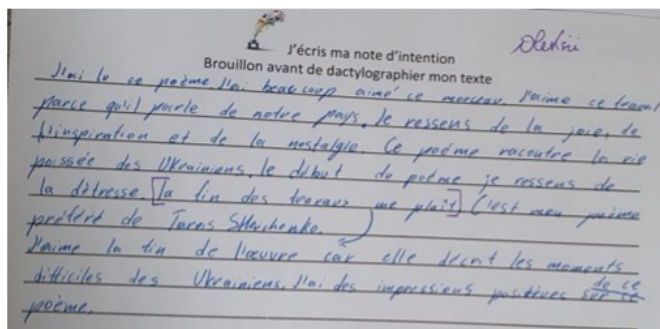 J'écris ma note d'intention
Oleksii
Brouillon avant de dactylographier mon texte
J'ai lu ce poème J'ai beaucoup aimé ce morceau. J'aime ce travail
parce qu'il parle de notre pays. Je ressens de la joie, de
l'inspiration et de la nostalgie. Ce poème racontre la vie
poissée des Ukrainiens. le début du poème je ressens de
la détresse. [la fin des travaux me plaît] C'est mon poème
préféré de Taras SHevchenko.
J'aime la fin de l'œuvre car elle décrit les moments
difficiles des Ukrainiens. J'ai des impressions positives sur ce de ce
poème.